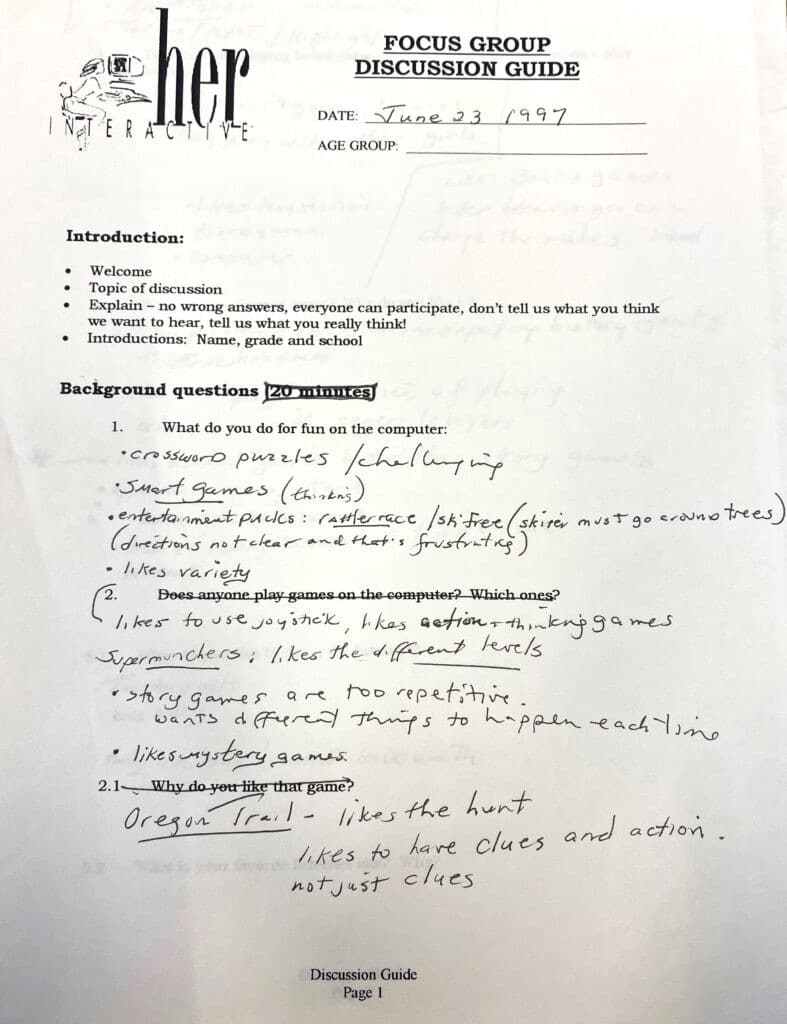 her
INTERACTIVE
FOCUS GROUP
DISCUSSION GUIDE
DATE: June 23 1997
AGE GROUP:
Introduction:
• Welcome
• Topic of discussion
• Explain – no wrong answers, everyone can participate, don't tell us what you think
we want to hear, tell us what you really think!
• Introductions: Name, grade and school
Background questions [20 minutes]
1. What do you do for fun on the computer:
• crossword puzzles / challenging
• Smart games (thinking)
• entertainment packs: rattlerrace / skifree (skier must go around trees)
(directions not clear and that's frustrating)
• likes variety
2. Does anyone play games on the computer? Which ones?
likes to use joystick, likes action + thinking games
Supermunchers: likes the different levels
• story games are too repetitive.
wants different things to happen each time
• likes mystery games.
2.1 Why do you like that game?
Oregon Trail - likes the hunt
likes to have clues and action.
not just clues
Discussion Guide
Page 1